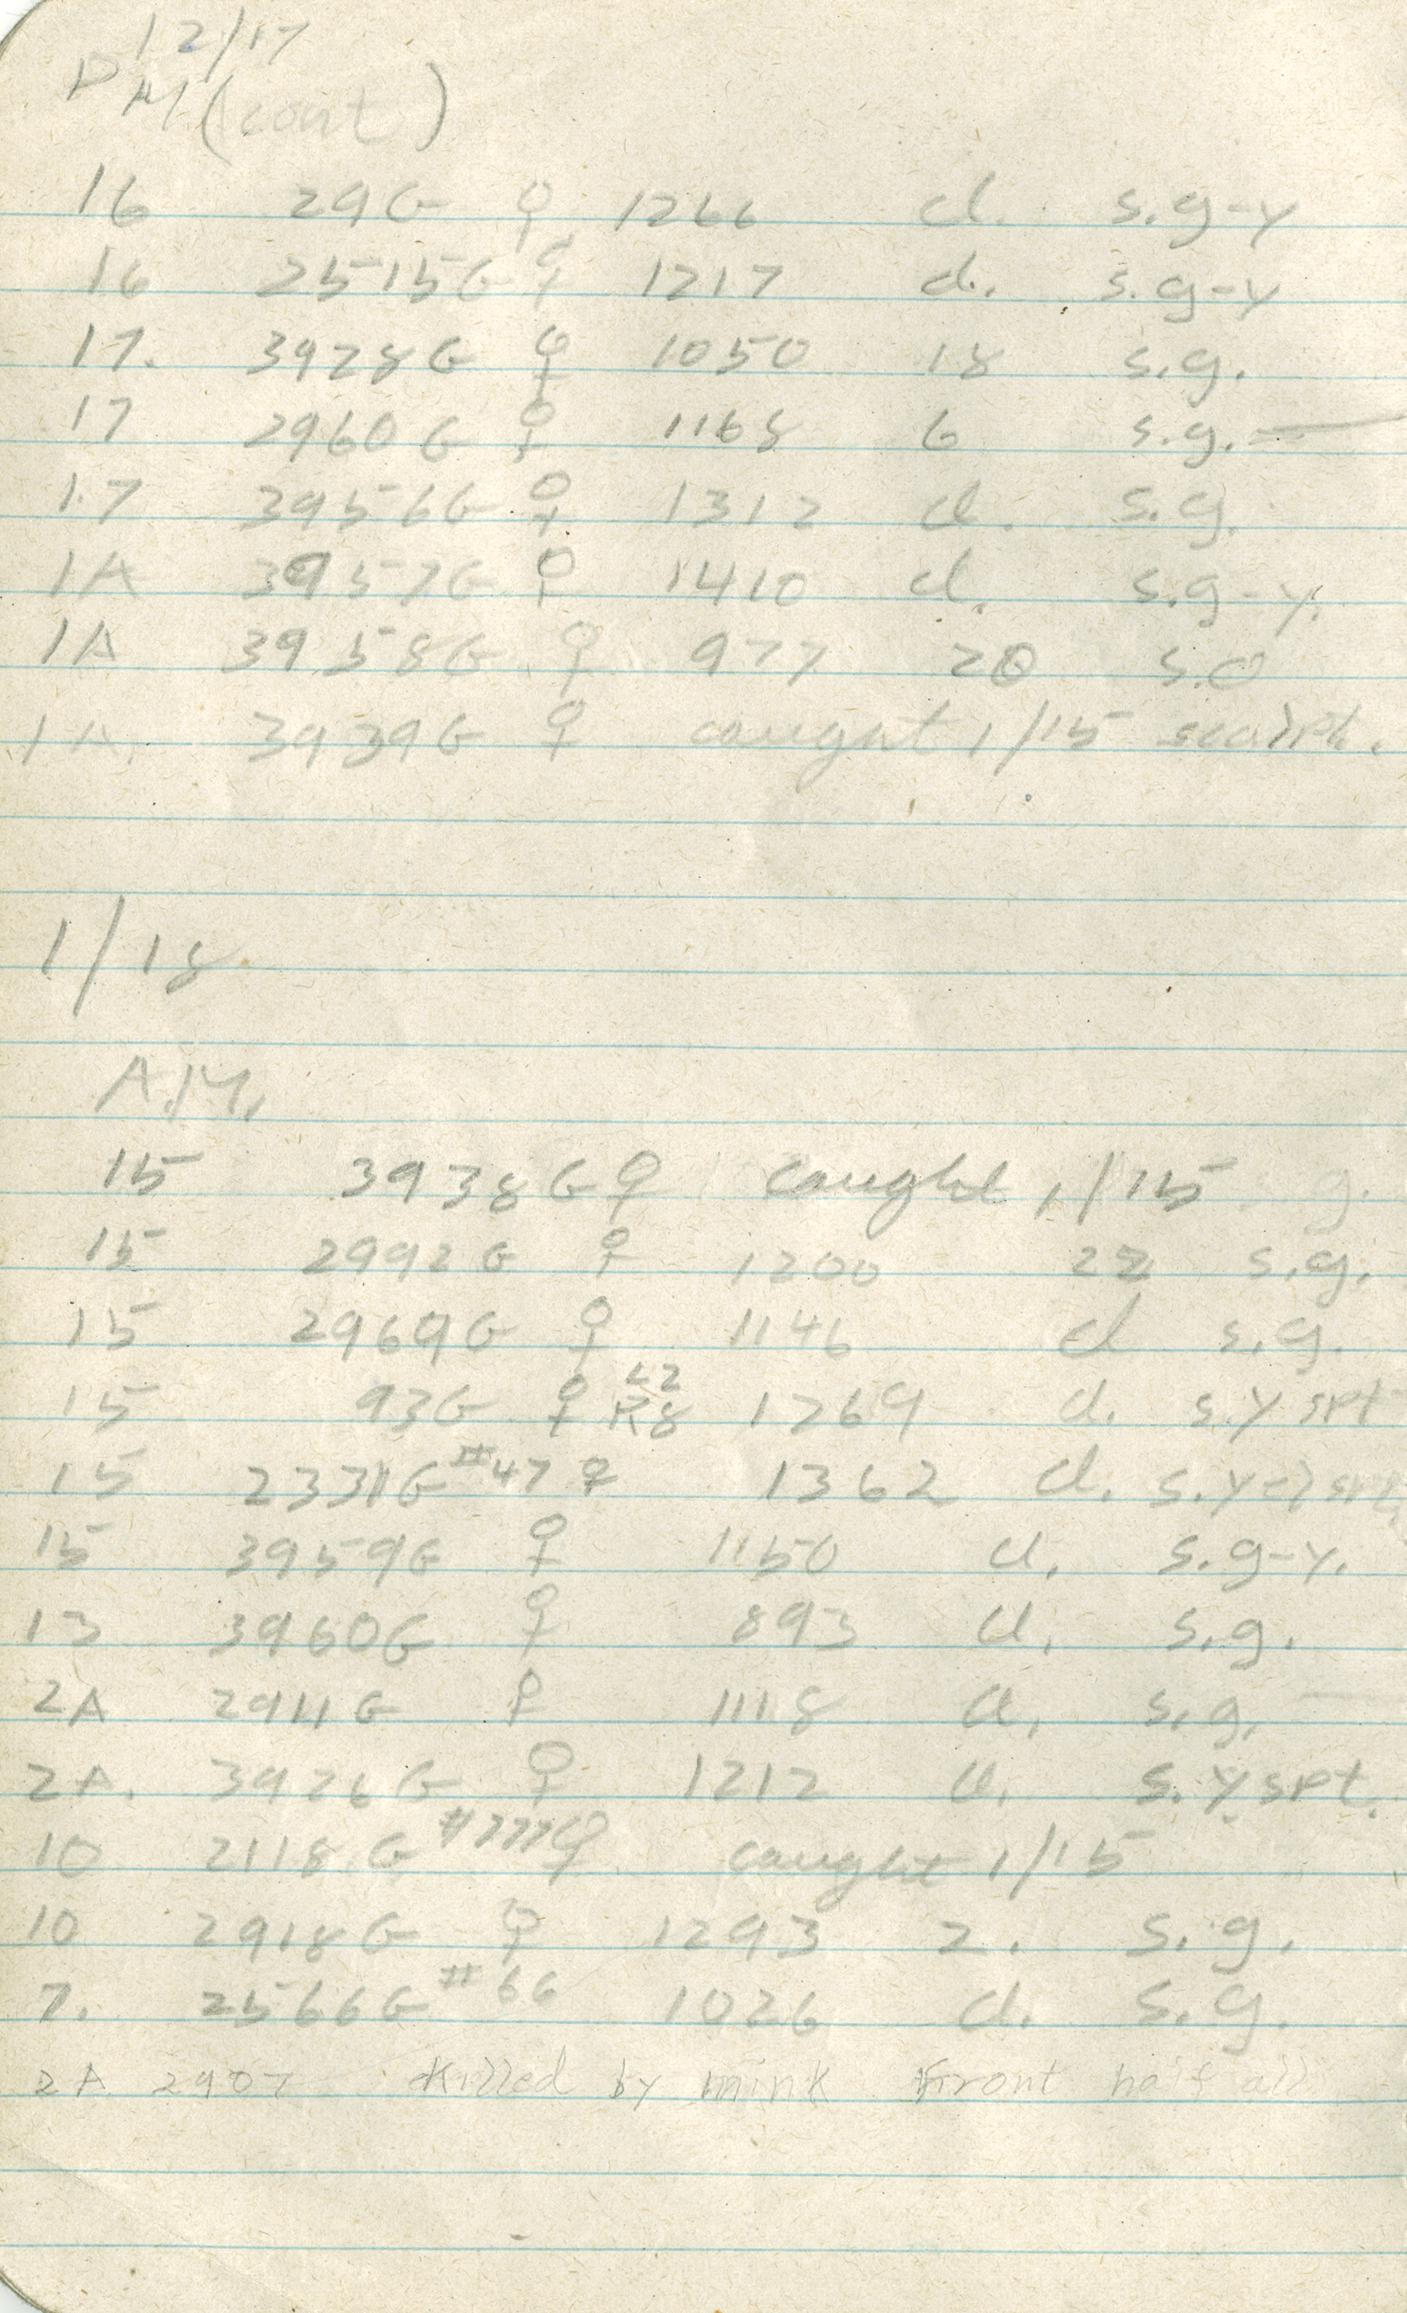 12/17
PM (cont)
16 29G ♀ 1266 cl. s.g-y
16 2515G ♀ 1217 cl. s.g-y
17. 3928G ♀ 1050 18 s.g.
17 2960G ♀ 1168 6 s.g. —
17 3956G ♀ 1312 cl. s.g.
1A 3957G ♀ 1410 cl. s.g-y.
1A 3958G ♀ 977 20 s.o
1A. 3939G ♀ caught 1/15
1/18
A.M.
15 3938G ♀ caught 1/15 g.
15 2992G ♀ 1200 22 s.g.
15 2969G ♀ 1146 cl s.g.
15 93G ♀ L2 R8 1269 cl. s.y spt
15 2331G #47 ♀ 1362 cl.
15 3959G ♀ 1150 cl. s.g-y.
13 3960G ♀ 893 cl. s.g.
2A 2911G ♀ 1118 cl. s.g. —
2A. 3926G ♀ 1212 cl. s.y.spt.
10 2118G #777 ♀ caught 1/15
10 2918G ♀ 1293 2. s.g.
7. 2566G #66 1026 cl. s.g.
2A 2907 Killed by mink Front half all